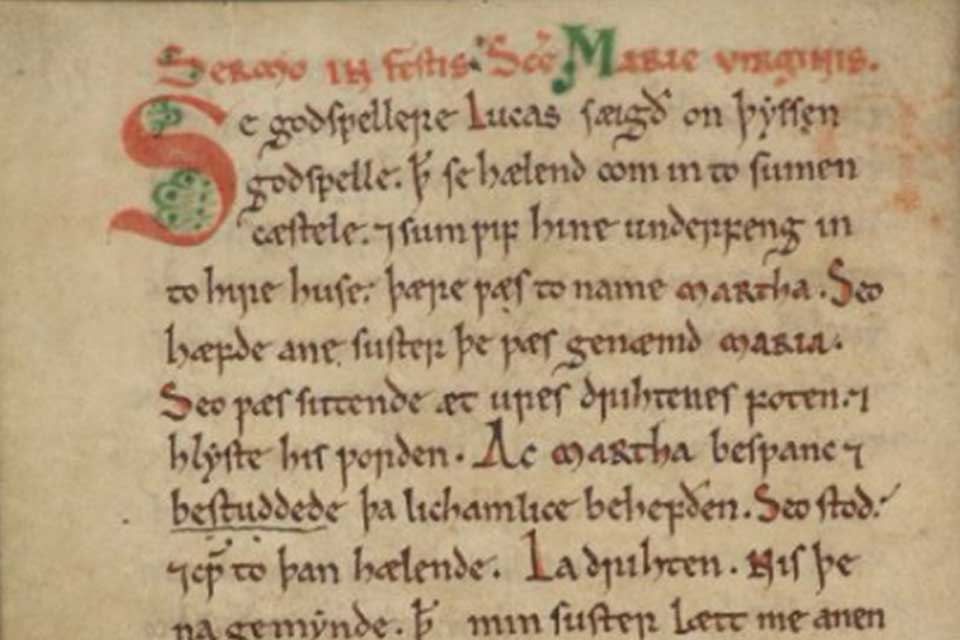 Sermo in festis Sc̄e Marie virginis.
Se godspellere Lucas sæigð on þyssen
godspelle. ꝥ se hælend com in to sumen
cæstele. ⁊ sum ƿif hine underfeng in
to hire huse. þære ƿæs to name martha. Seo
hæfde ane suster þe ƿæs genæmd maria.
Seo ƿæs sittende æt ures drihtenes foten. ⁊
hlyste his ƿorden. Ac martha besƿanc ⁊
bestuddede þa lichamlice behefðen. Seo stod.
⁊ cƿ̄ to þan hælende. La drihten. Nis þe
na gemynde. ꝥ min suster Lætt me anen